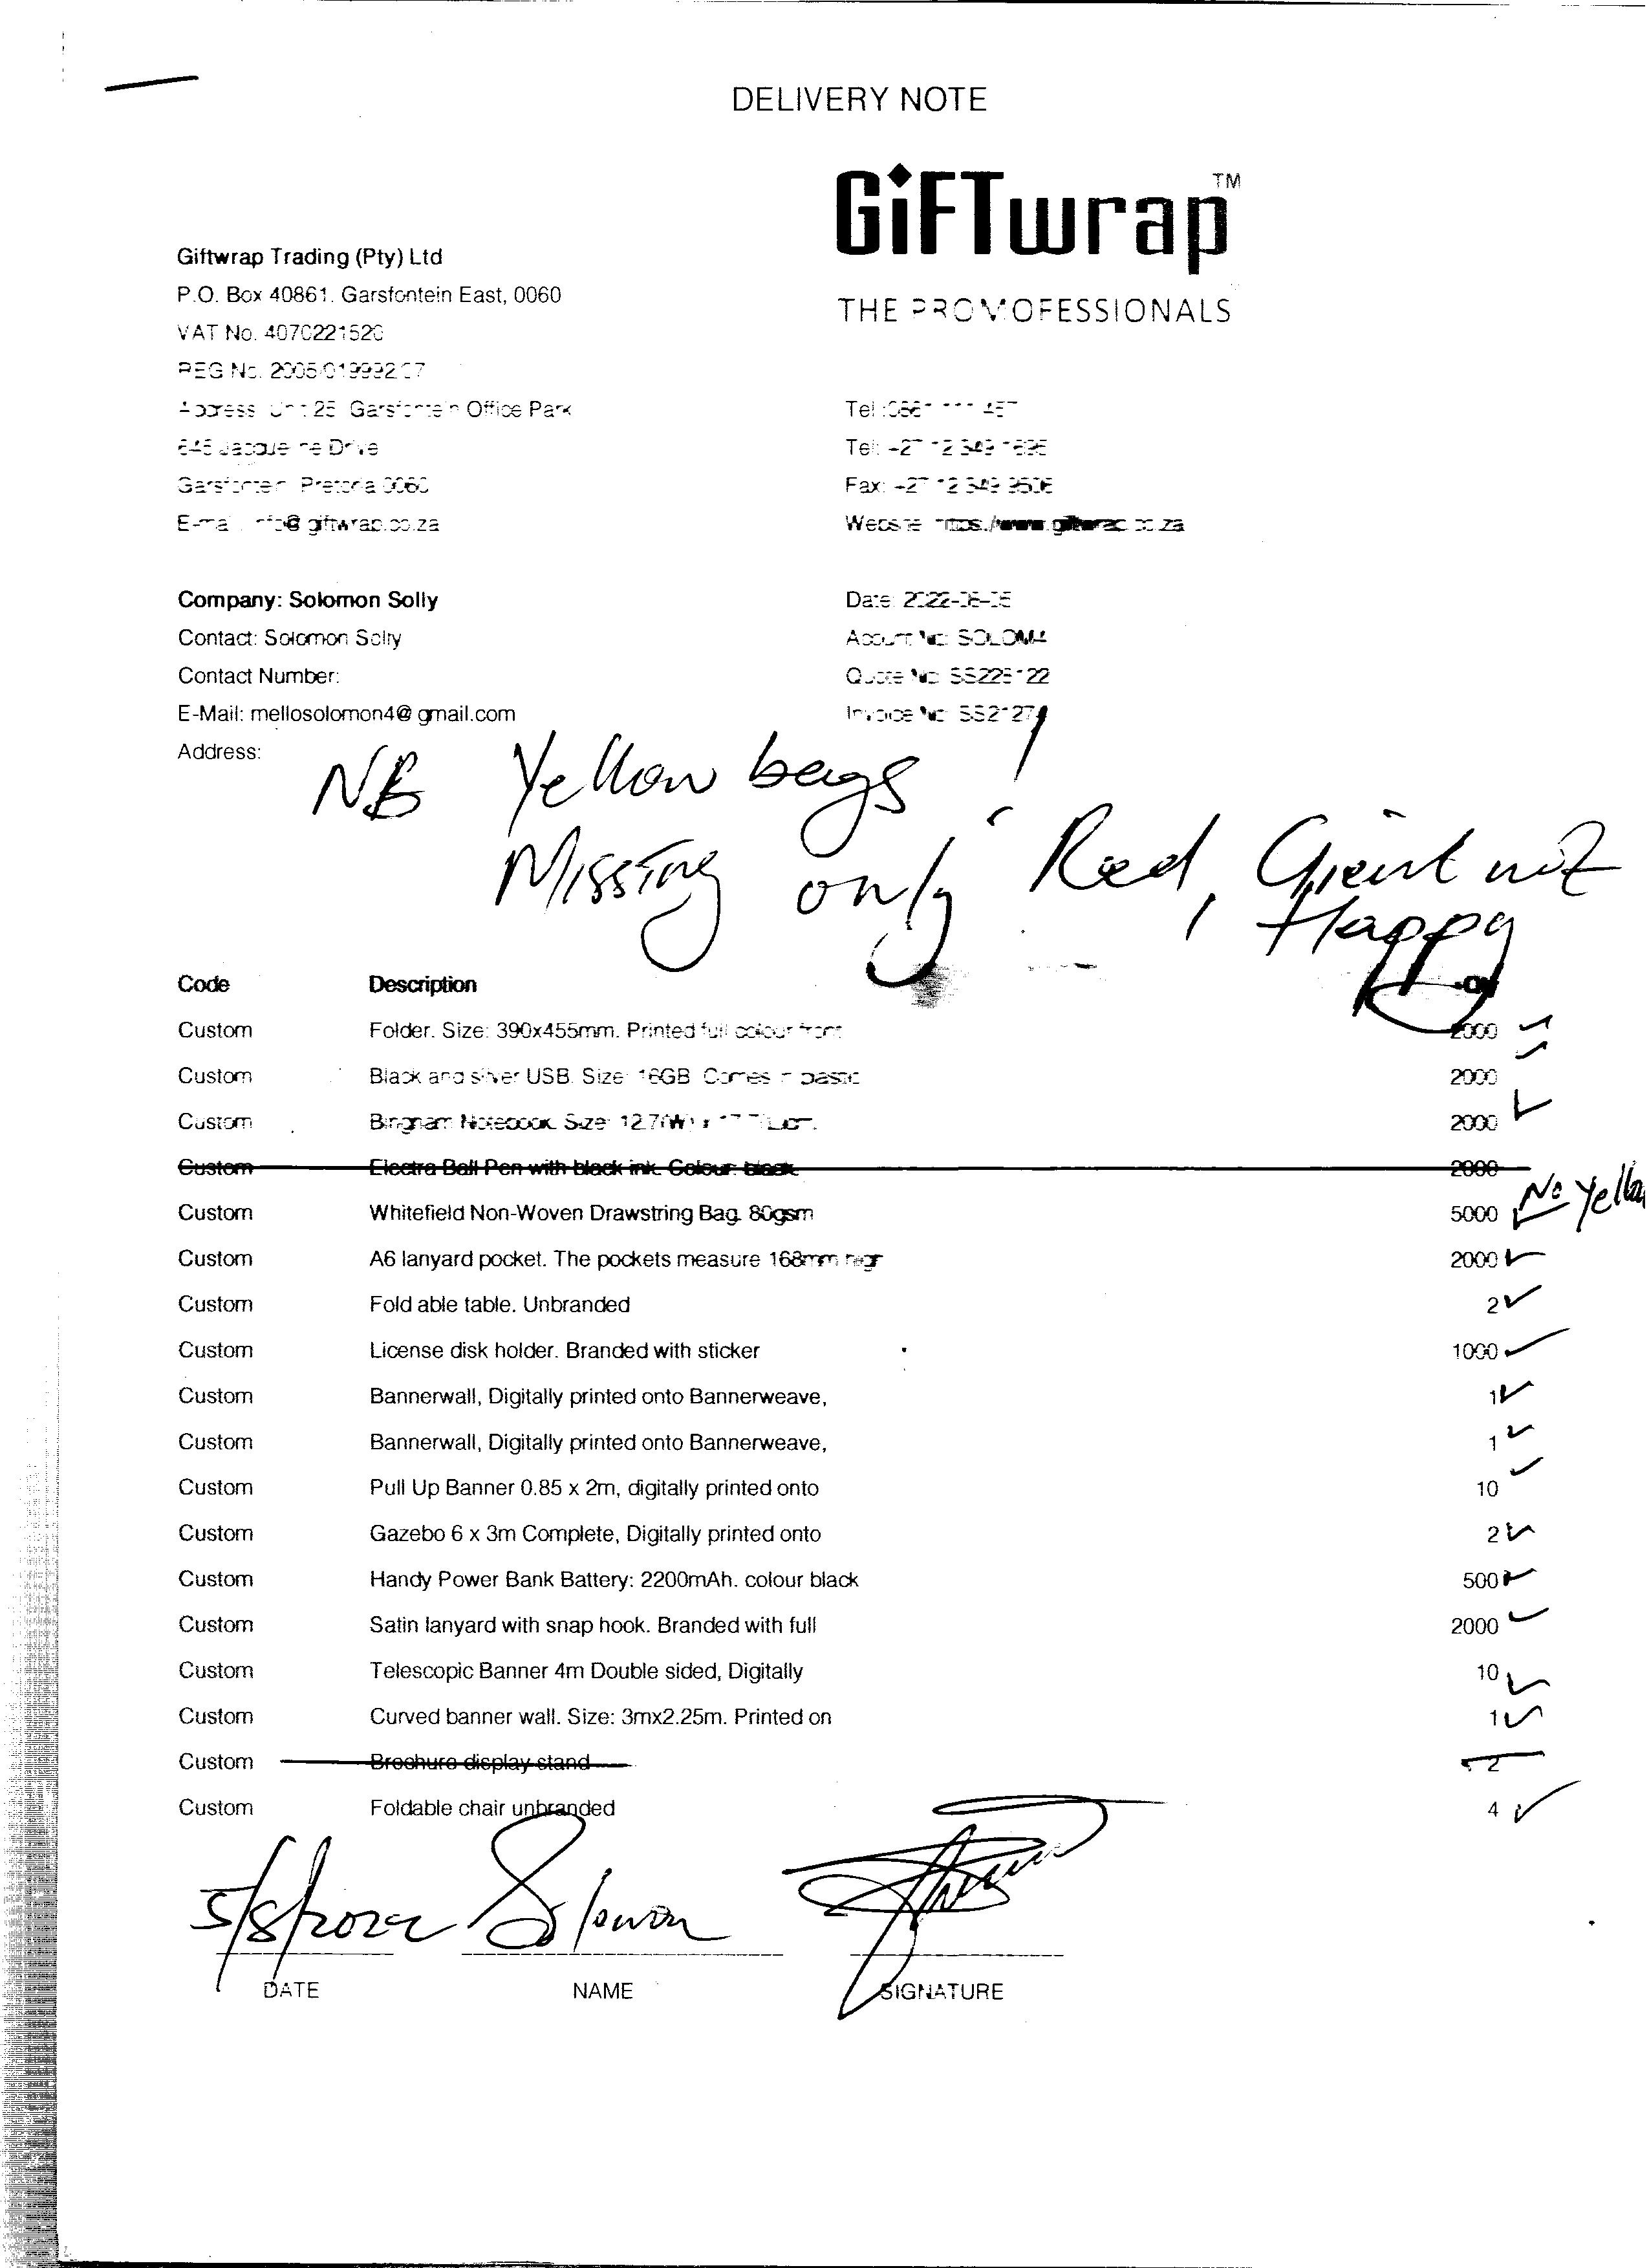 DELIVERY NOTE
GiFTwrap™
THE PROMOFESSIONALS
Giftwrap Trading (Pty) Ltd
P.O. Box 40861. Garsfontein East, 0060
VAT No. 4070221520
REG No. 2005/019992/07
Address: Unit 25 Garsfontein Office Park
645 Jacqueline Drive
Garsfontein Pretoria 0060
E-mail: info@giftwrap.co.za
Tel :0861
Tel: +27 12 349
Fax: +27 12 349
Website: https://www.giftwrap.co.za
Company: Solomon Solly
Contact: Solomon Solly
Contact Number:
E-Mail: mellosolomon4@gmail.com
Address:
Date: 2022-08-05
Account No: SOLOM4
Quote No: SS225122
Invoice No: SS21274
NB Yellow bags !
Missing only Red, Client not
Happy
Code Description
Custom Folder. Size: 390x455mm. Printed full colour front 2000
Custom Black and silver USB. Size: 16GB Comes in plastic 2000
Custom Bingham Notebook. Size: 12.7(W) x 2000
Custom Electra Ball Pen with black ink. Colour: black 2000
Custom Whitefield Non-Woven Drawstring Bag. 80gsm 5000 No Yellow
Custom A6 lanyard pocket. The pockets measure 168mm 2000
Custom Fold able table. Unbranded 2
Custom License disk holder. Branded with sticker 1000
Custom Bannerwall, Digitally printed onto Bannerweave, 1
Custom Bannerwall, Digitally printed onto Bannerweave, 1
Custom Pull Up Banner 0.85 x 2m, digitally printed onto 10
Custom Gazebo 6 x 3m Complete, Digitally printed onto 2
Custom Handy Power Bank Battery: 2200mAh. colour black 500
Custom Satin lanyard with snap hook. Branded with full 2000
Custom Telescopic Banner 4m Double sided, Digitally 10
Custom Curved banner wall. Size: 3mx2.25m. Printed on 1
Custom Brochure display stand 2
Custom Foldable chair unbranded 4
5/8/2022 Solomon
DATE NAME SIGNATURE